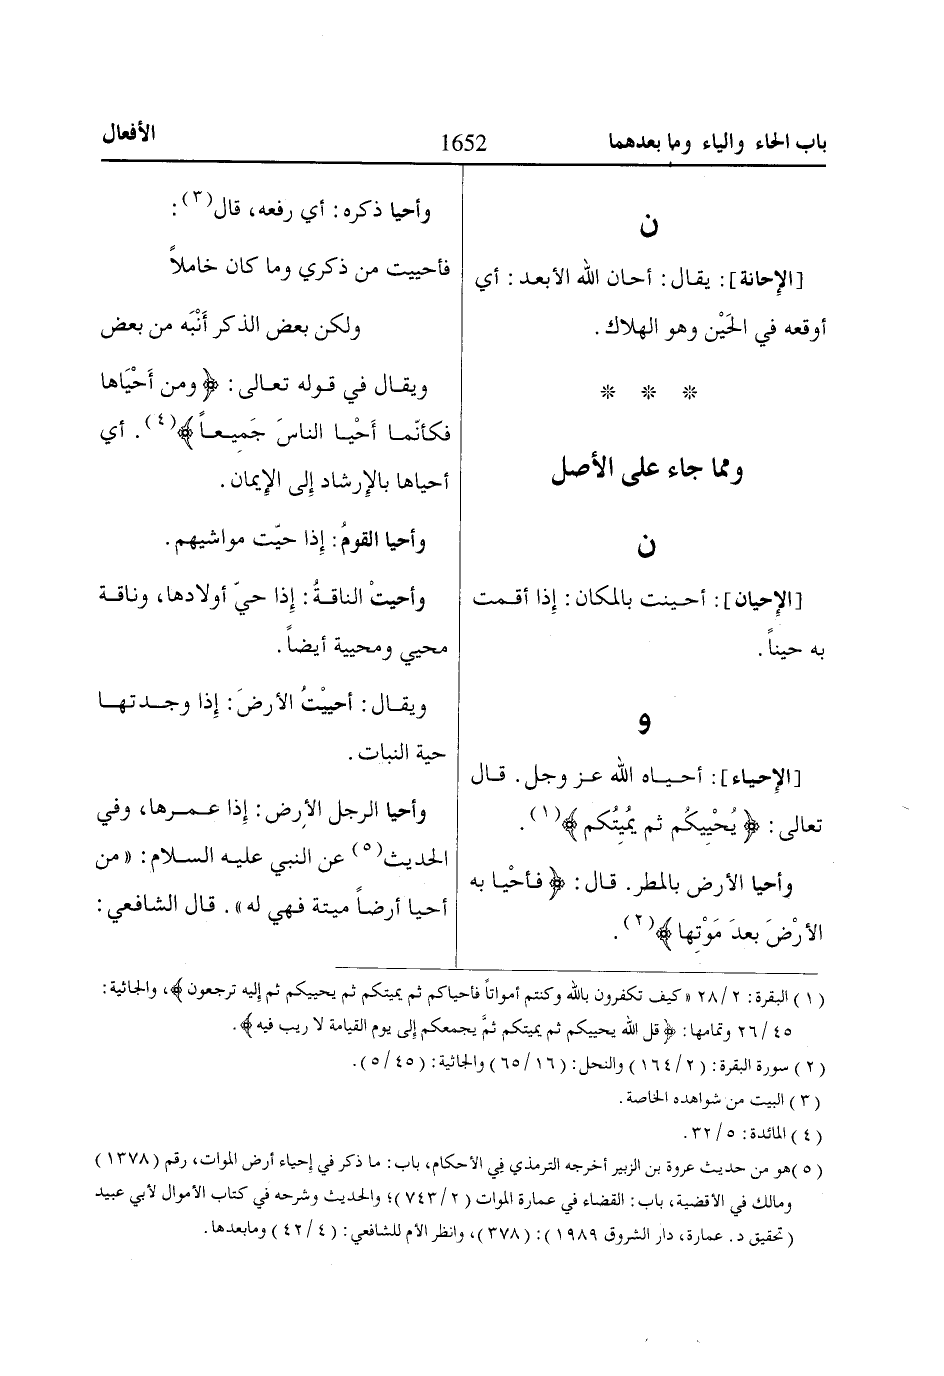 باب الحاء والياء وما بعدهما
1652
الأفعال
ن
[الإحانة]: يقال: أحان الله الأبعد: أي
أوقعه في الحَيْن وهو الهلاك.
* * *
ومما جاء على الأصل
ن
[الإحيان]: أحينت بالمكان: إذا أقمت
به حيناً.
و
[الإحياء]: أحياه الله عز وجل. قال
تعالى: ﴿يُحْيِيكُم ثم يُمِيتُكم﴾(١).
وأحيا الأرض بالمطر. قال: ﴿فأحْيا به
الأرْضَ بعدَ مَوْتِها﴾(٢).
وأحيا ذكره: أي رفعه، قال(٣):
فأحييت من ذكري وما كان خاملاً
ولكن بعض الذكر أنْبَه من بعض
ويقال في قوله تعالى: ﴿ومن أحْيَاها
فكأنّما أحْيا الناسَ جَميعاً﴾(٤). أي
أحياها بالإرشاد إلى الإيمان.
وأحيا القومُ: إذا حيّت مواشيهم.
وأحيتْ الناقةُ: إذا حيّ أولادها، وناقة
محيي ومحيية أيضاً.
ويقال: أحييْتُ الأرضَ: إذا وجدتها
حية النبات.
وأحيا الرجل الأرض: إذا عمرها، وفي
الحديث(٥) عن النبي عليه السلام: «من
أحيا أرضاً ميتة فهي له». قال الشافعي:
(١) البقرة: ٢٨/٢ «كيف تكفرون بالله وكنتم أمواتاً فأحياكم ثم يميتكم ثم يحييكم ثم إليه ترجعون﴾، والجاثية:
٢٦/٤٥ وتمامها: ﴿قل الله يحييكم ثم يميتكم ثمَّ يجمعكم إلى يوم القيامة لا ريب فيه﴾.
(٢) سورة البقرة: (١٦٤/٢) والنحل: (٦٥/١٦) والجاثية: (٥/٤٥).
(٣) البيت من شواهده الخاصة.
(٤) المائدة: ٣٢/٥.
(٥) هو من حديث عروة بن الزبير أخرجه الترمذي في الأحكام، باب: ما ذكر في إحياء أرض الموات، رقم (١٣٧٨)
ومالك في الأقضية، باب: القضاء في عمارة الموات (٧٤٣/٢)؛ والحديث وشرحه في كتاب الأموال لأبي عبيد
(تحقيق د. عمارة، دار الشروق ١٩٨٩): (٣٧٨)، وانظر الأم للشافعي: (٤٢/٤) ومابعدها.